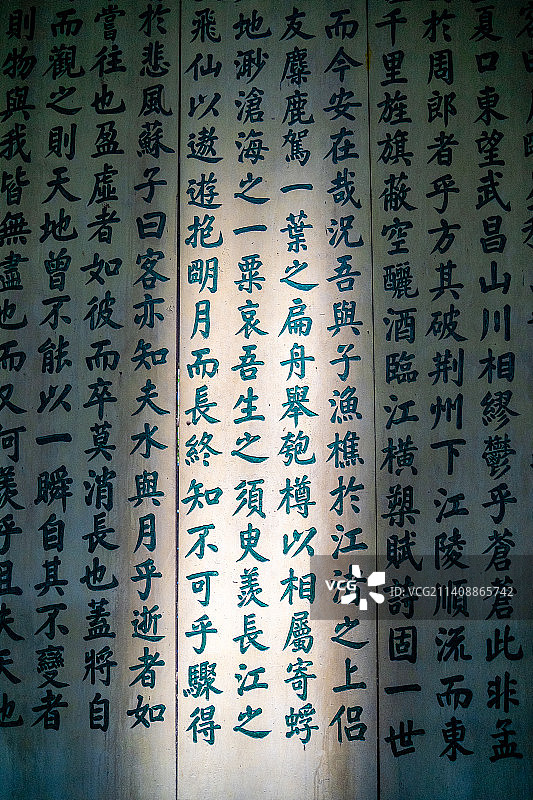 夏口東望武昌山川相繆鬱乎蒼蒼此非孟
於周郎者乎方其破荆州下江陵順流而東
千里旌旗蔽空釃酒臨江橫槊賦詩固一世
而今安在哉況吾與子漁樵於江渚之上侶
友麋鹿駕一葉之扁舟舉匏樽以相屬寄蜉
地渺滄海之一粟哀吾生之須臾羨長江之
飛仙以遨遊抱明月而長終知不可乎驟得
於悲風蘇子曰客亦知夫水與月乎逝者如
嘗往也盈虛者如彼而卒莫消長也蓋將自
而觀之則天地曾不能以一瞬自其不變者
則物與我皆無盡也而又何羨乎且夫天地
VCG
VCG211408865742